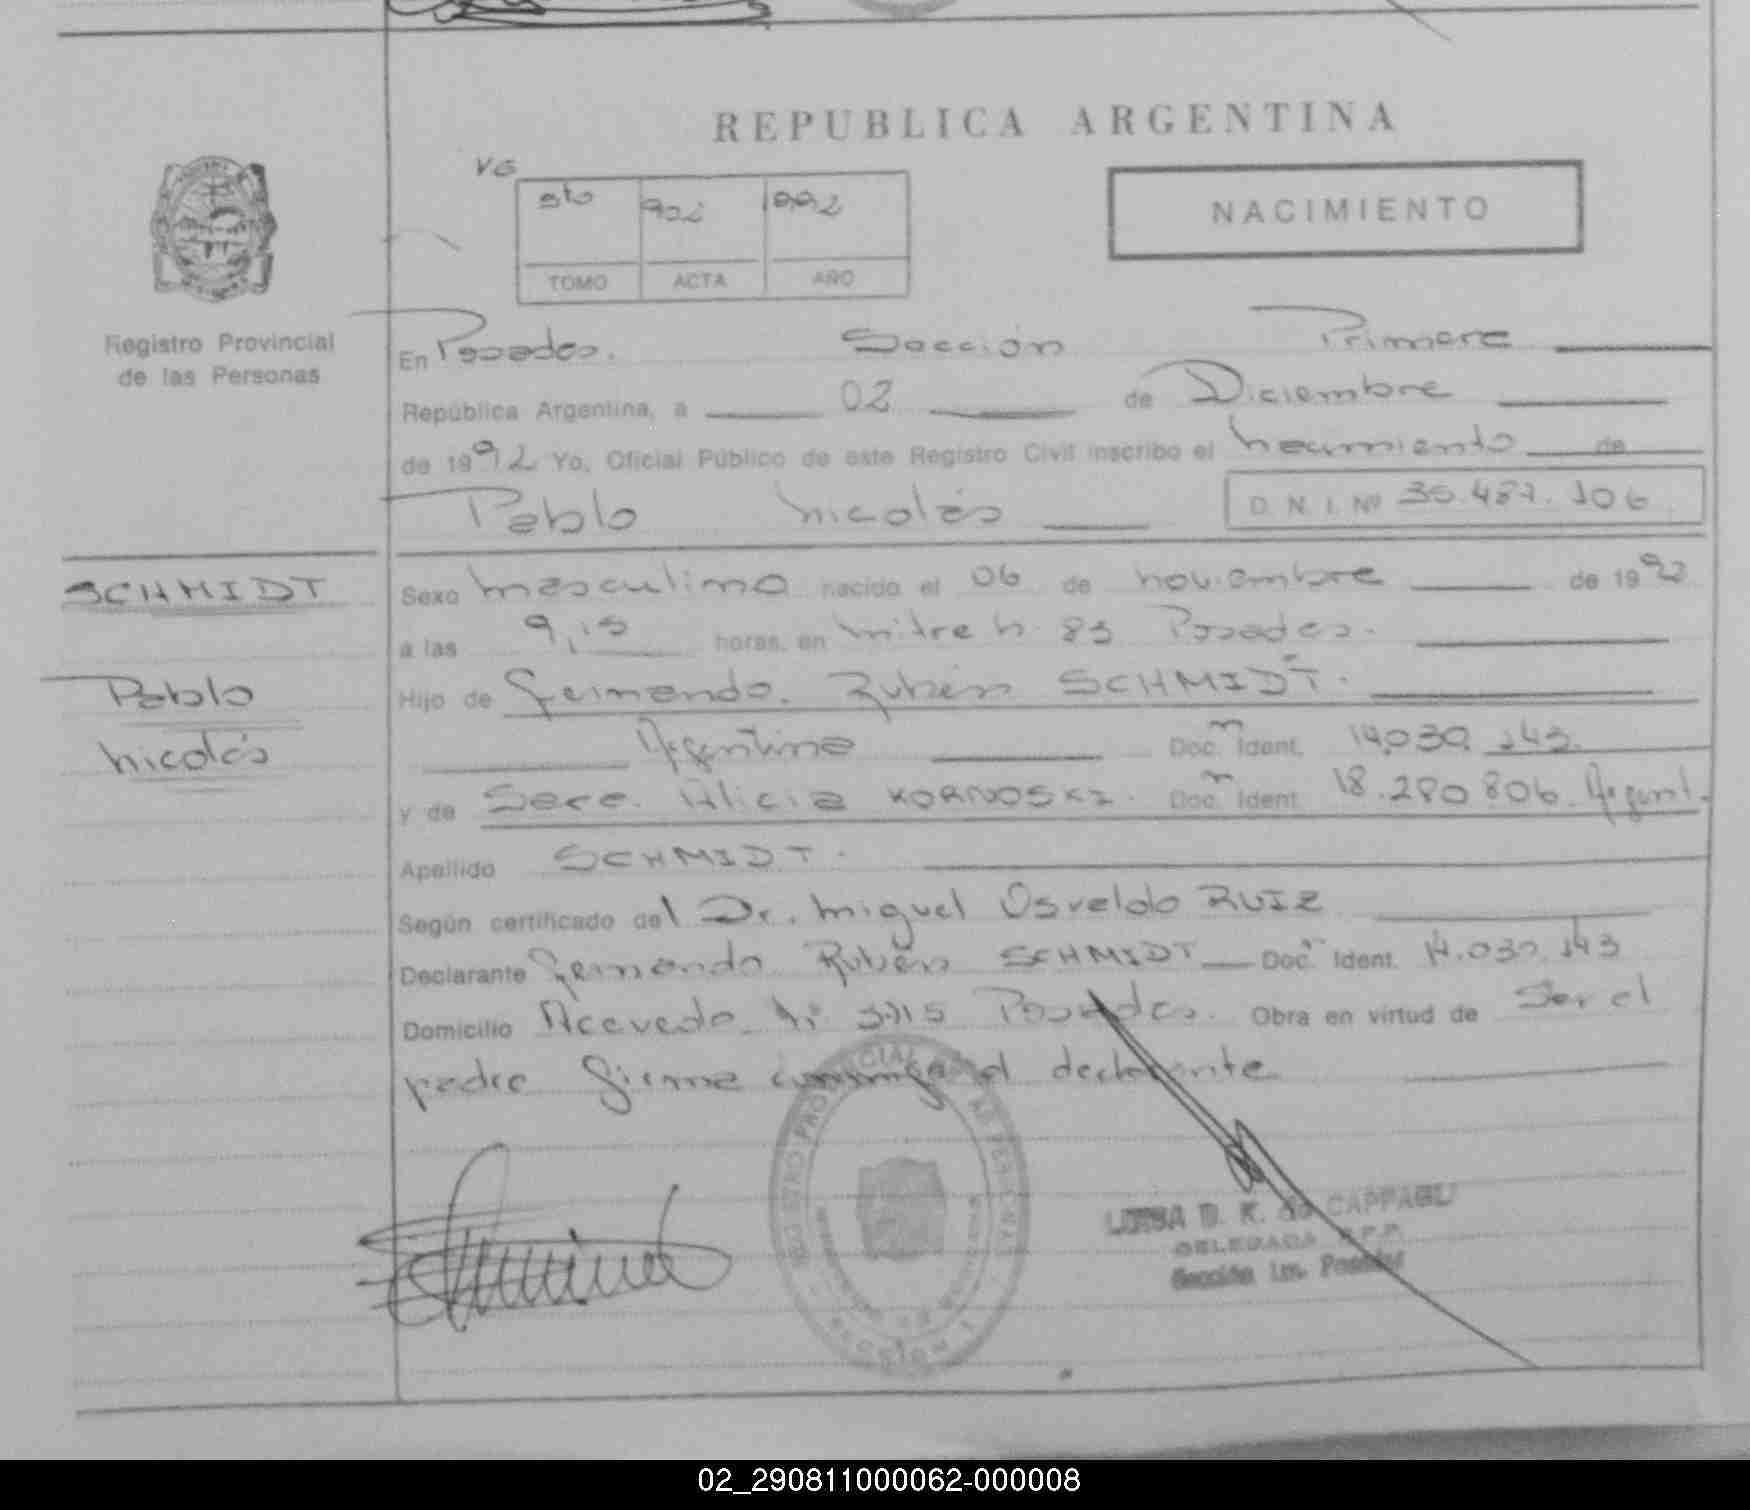 REPUBLICA ARGENTINA
VG
5to 902 1992
TOMO ACTA AÑO
NACIMIENTO
Registro Provincial
de las Personas
En Posadas. Sección Primera
República Argentina, a 02 de Diciembre
de 1992 Yo, Oficial Público de este Registro Civil inscribo el nacimiento de
Pablo Nicolás D. N. I. Nº 36.487.106
SCHMIDT
Pablo
Nicolás
Sexo masculino nacido el 06 de noviembre de 1992
a las 9,15 horas, en Mitre n 83 Posadas.
Hijo de Fernando. Rubén SCHMIDT.
Argentina Doc. Ident. 14.030.143.
y de Sara. Alicia KORNOSKI. Doc. Ident. 18.280.806. Argent.
Apellido SCHMIDT.
Según certificado del Dr. Miguel Osvaldo RUIZ
Declarante Fernando Rubén SCHMIDT Doc. Ident. 14.030.143
Domicilio Acevedo Posadas. Obra en virtud de Ser el
padre Firma conmigo el declarante
REGISTRO PROVINCIAL DE LAS PERSONAS
SECCION 1
LUISA D. K. de CAPPAGLI
DELEGADA R.P.P.
Sección 1ra. Posadas
02_290811000062-000008